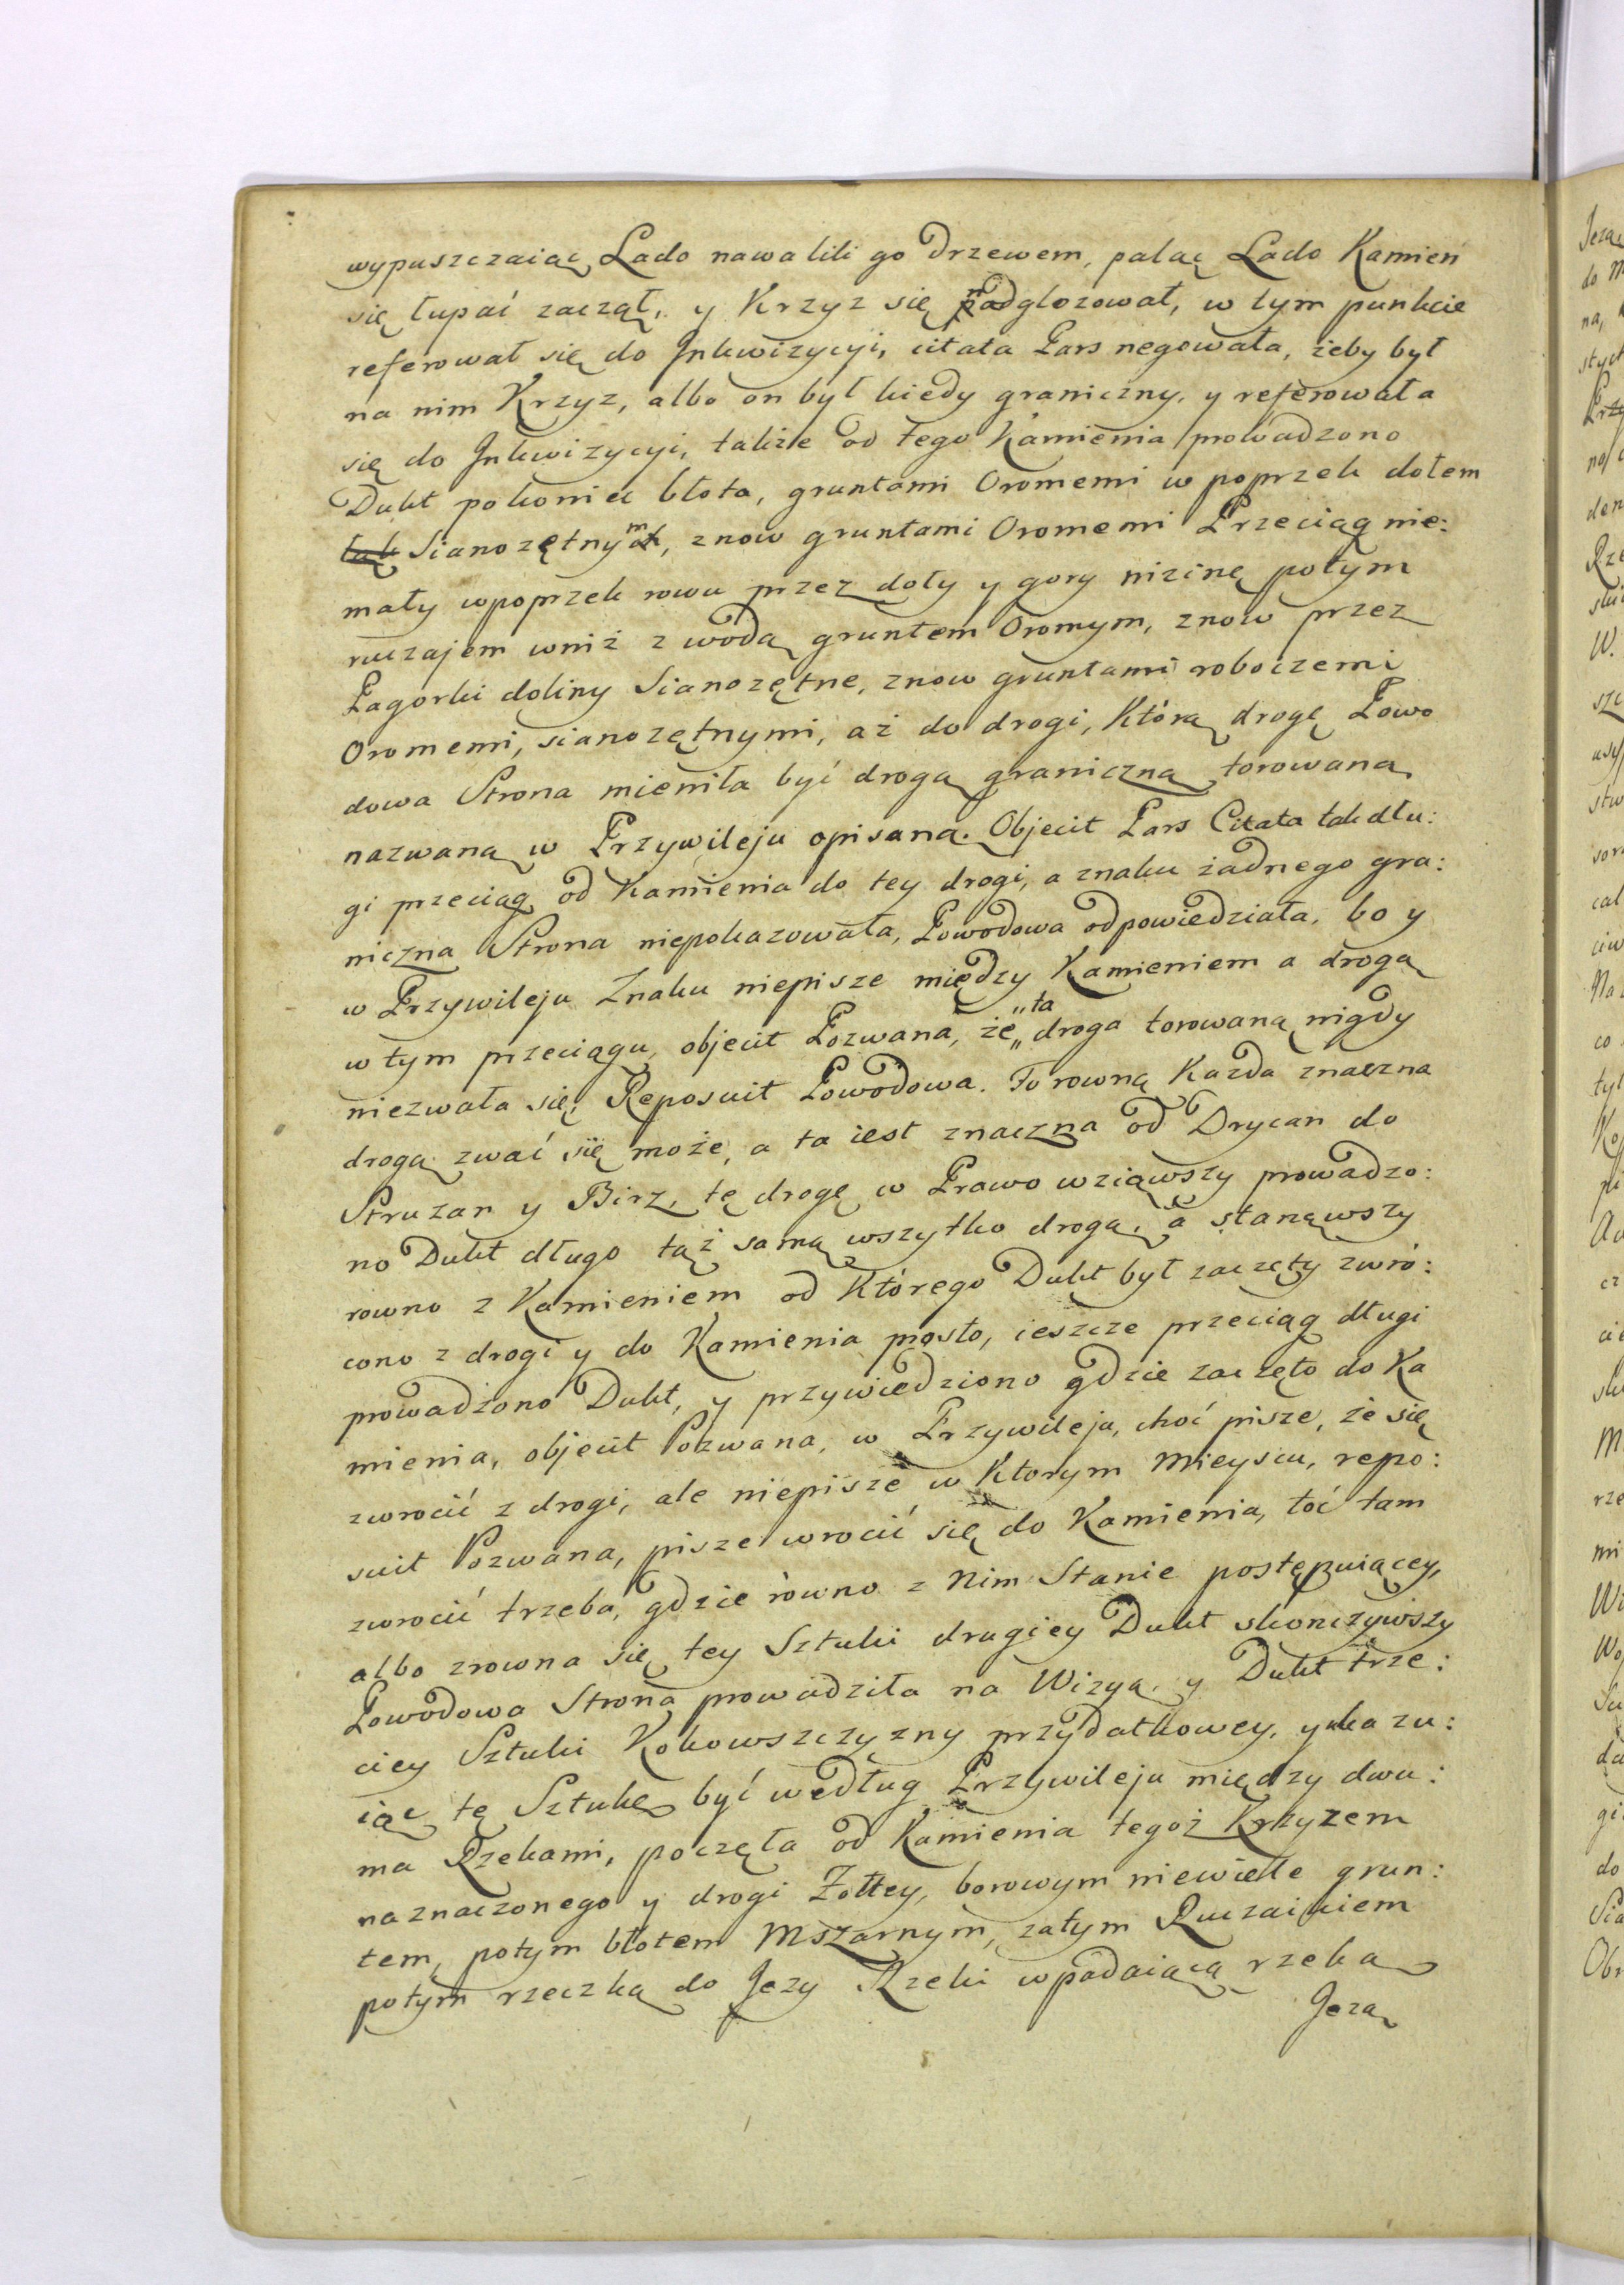 wypuszczaiąc Lado nawalili go drzewem, paląc Lado Kamień
się łupać zaczął, y Krzyz się nadglozował, w tym punkcie
referował się do Inkwizycyi, citata Pars negowała, żeby był
na nim Krzyz, albo on był kiedy graniczny, y referowała
się do Inkwizycyi, także od tego Kamienia prowadzono
Dukt pokoniec błota, gruntami Oromemi w poprzek dołem
Sianozętnym, znow gruntami Oromemi Przeciąg nie:
mały wpoprzek rowu przez doły y gory nizinę potym
ruczajem wniż z wodą gruntem Oromym, znow przez
Pagorki doliny Sianozętne, znow gruntami roboczemi
Oromemi, sianozętnymi, aż do drogi, Którą drogę Powo
dowa Strona mieniła być drogą graniczną torowaną
nazwaną w Przywileju opisaną. Objecit Pars Citata tak dłu:
gi przeciąg od Kamienia do tey drogi, a znaku żadnego gra:
niczna Strona niepokazowała, Powodowa odpowiedziała, bo y
w Przywileju Znaku niepisze między Kamieniem a drogą
w tym przeciągu, objecit Pozwana, że „ta„ droga torowaną nigdy
niezwała się, Reposuit Powodowa. Torowną Kazda znaczna
drogą zwać się może, a ta iest znaczna od Drycan do
Struzan y Birz, tę drogę w Prawo wziąwszy prowadzo:
no Dukt długo tąż samą wszytko drogą, a stanąwszy
rowno z Kamieniem od Którego Dukt był zaczęty zwró:
cono z drogi y do Kamienia prosto, ieszcze przeciąg długi
prowadzono Dukt, y przywiedziono gdzie zaczęto do Ka
mienia, objecit Pozwana, w Przywileju, choć pisze, że się
zwrocić z drogi, ale niepisze w Ktorym Mieyscu, repo:
suit Pozwana, pisze wrocić się do Kamienia, toć tam
zwrocić trzeba, gdzie rowno z Nim Stanie postępuiącey,
albo zrowna się tey Sztuki drugiey Dukt skonczywszy
Powodowa Strona prowadziła na Wizyą, y Dukt trze:
ciey Sztuki Kokowszczyzny przydatkowey, ukazu:
iąc tę Sztukę być według Przywileju między dwu:
ma Rzekami, poczęła od Kamienia tegoż Krzyzem
naznaczonego y drogi Zołtey, borowym niewiele grun:
tem, potym błotem Mszarnym, zatym Ruczaikiem
potym rzeczką do Jezy Rzeki wpadaiącą rzeką
Jezą